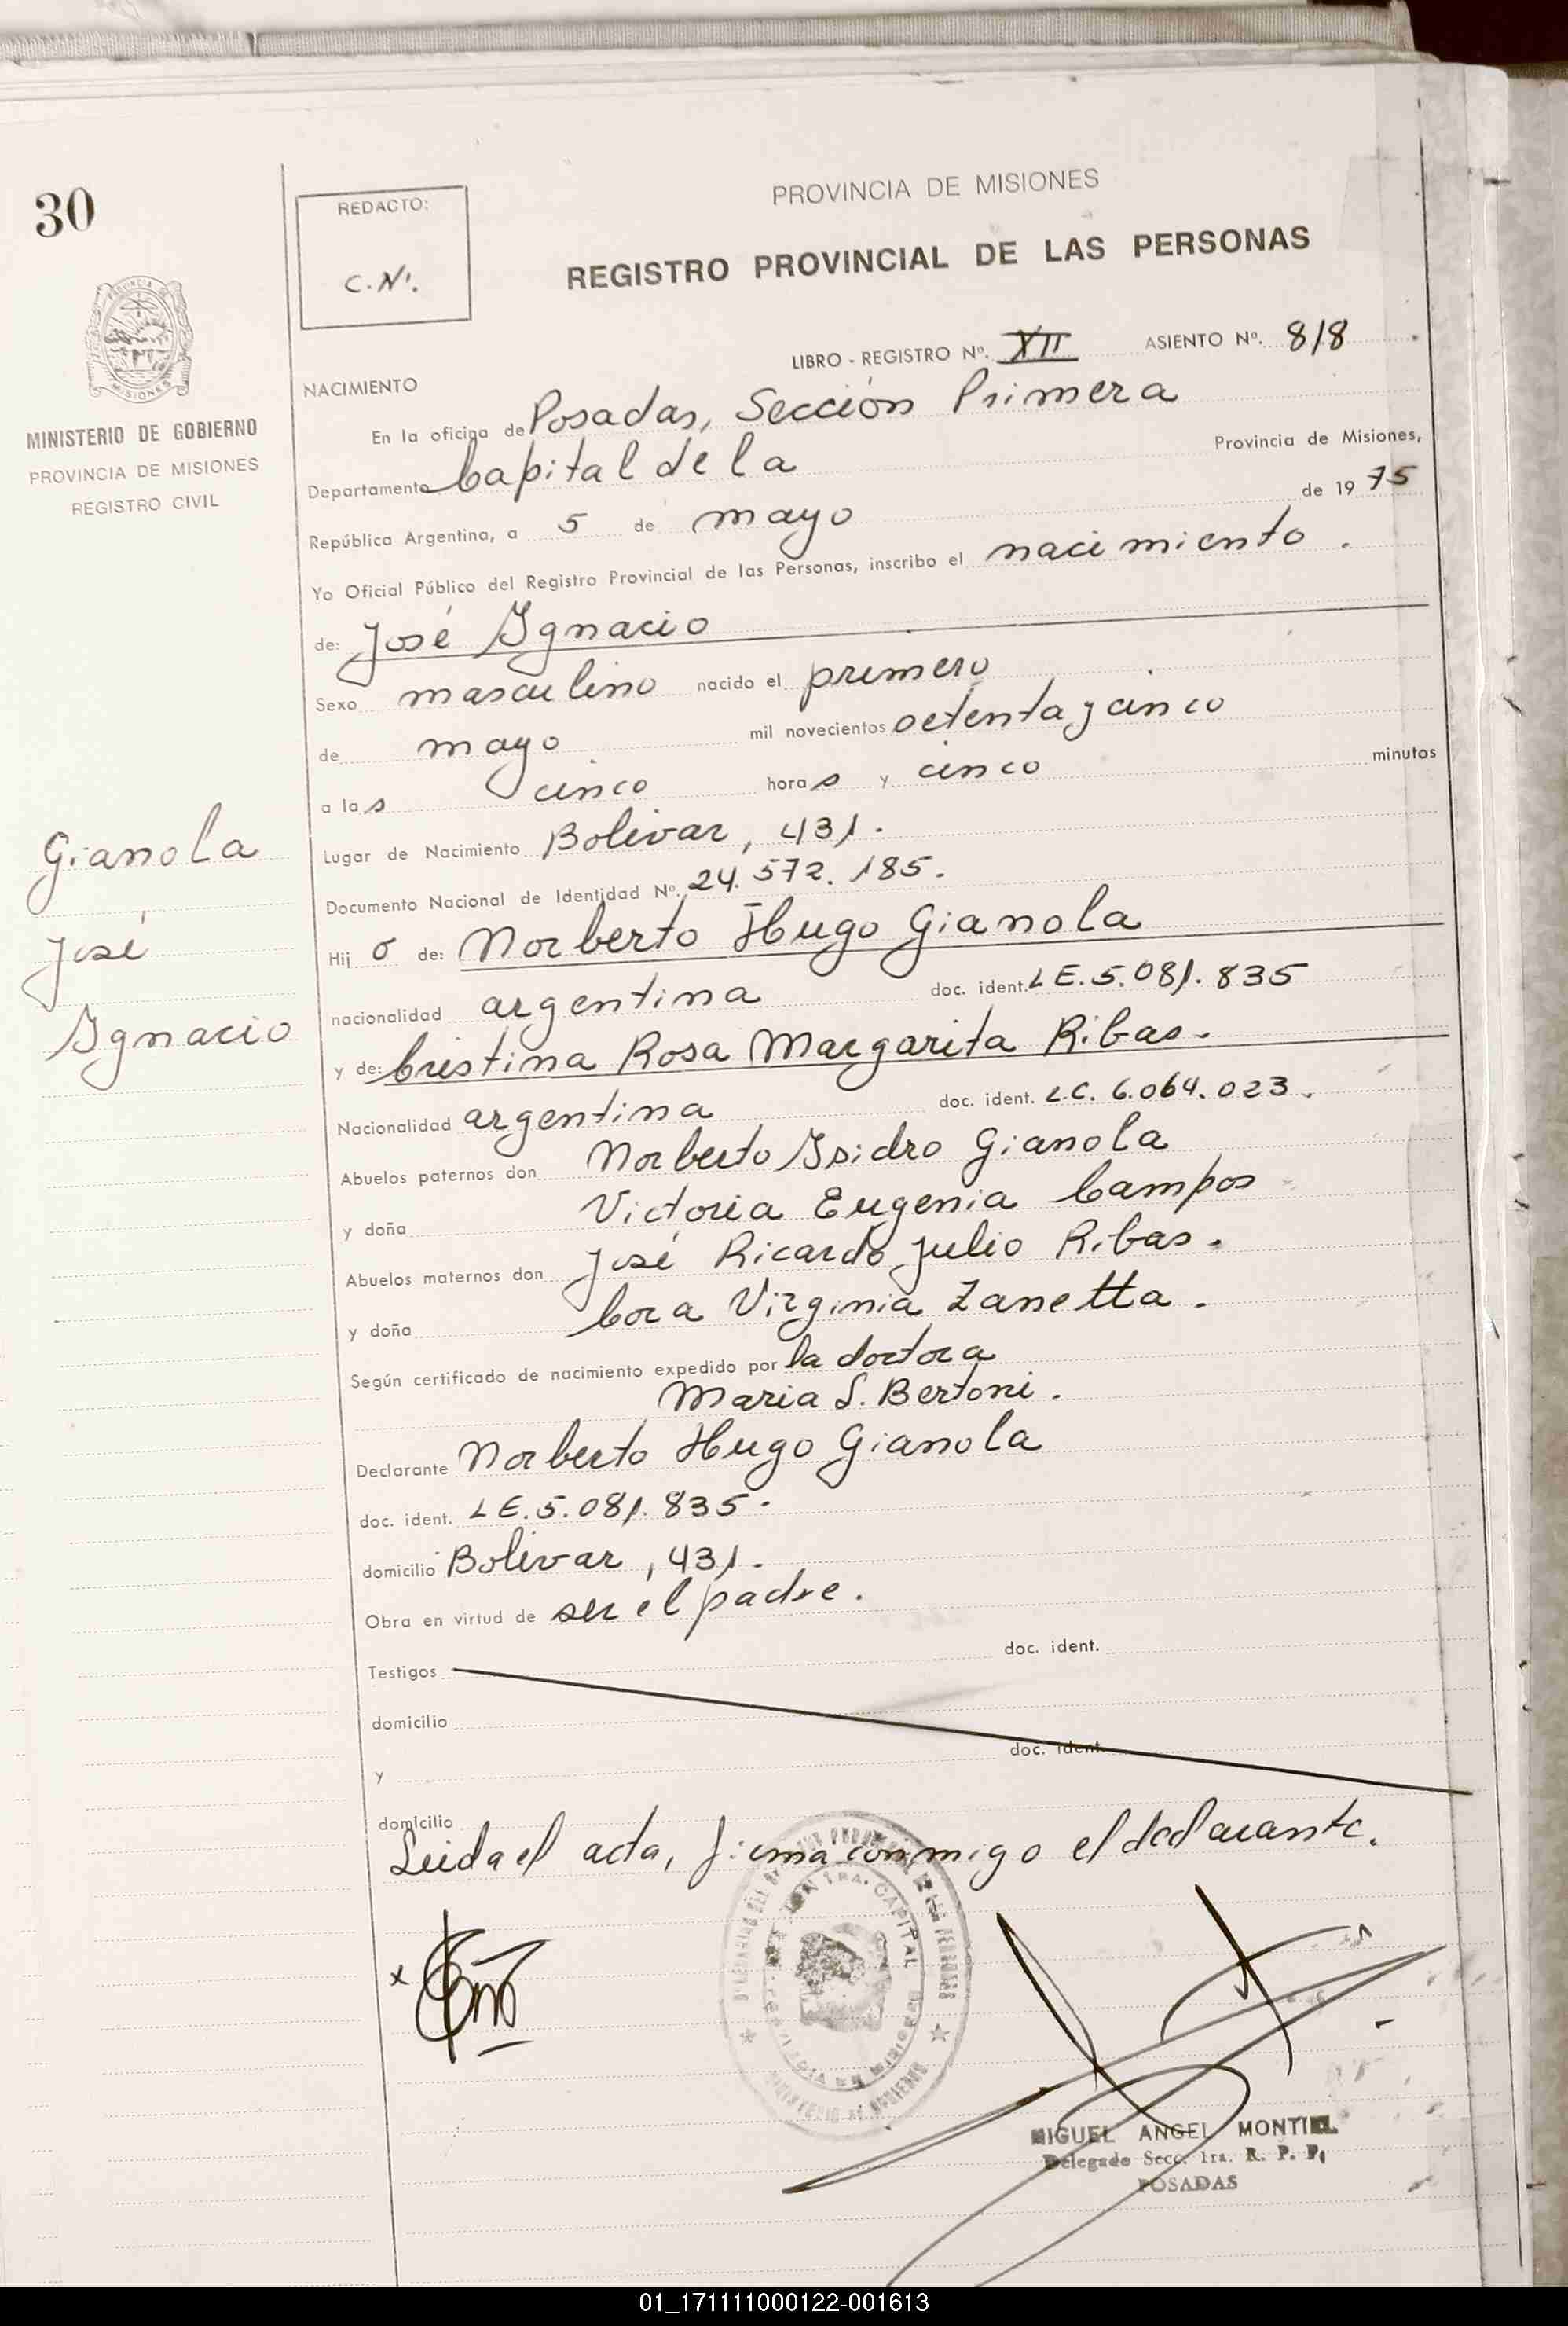 30
REDACTO:
C.N.
PROVINCIA DE MISIONES
REGISTRO PROVINCIAL DE LAS PERSONAS
MISIONES
MINISTERIO DE GOBIERNO
PROVINCIA DE MISIONES
REGISTRO CIVIL
LIBRO - REGISTRO Nº. XII ASIENTO Nº. 818
NACIMIENTO
En la oficina de Posadas, Sección Primera
Departamento Capital de la Provincia de Misiones,
República Argentina, a 5 de mayo de 1975
Yo Oficial Público del Registro Provincial de las Personas, inscribo el nacimiento.
de: José Ignacio
Sexo masculino nacido el primero
de mayo mil novecientos setenta y cinco
a las cinco horas y cinco minutos
Lugar de Nacimiento Bolivar, 431.
Documento Nacional de Identidad Nº. 24.572.185.
Gianola
José
Ignacio
Hijo de: Norberto Hugo Gianola
nacionalidad argentina doc. ident. LE.5.081.835
y de: Cristina Rosa Margarita Ribas.
Nacionalidad argentina doc. ident. L.C. 6.064.023.
Abuelos paternos don Norberto Isidro Gianola
y doña Victoria Eugenia Campos
Abuelos maternos don José Ricardo Julio Ribas.
y doña Cora Virginia Zanetta.
Según certificado de nacimiento expedido por la doctora
Maria S. Bertoni.
Declarante Norberto Hugo Gianola
doc. ident. LE.5.081.835.
domicilio Bolivar, 431.
Obra en virtud de ser el padre.
Testigos doc. ident.
domicilio
y doc. ident.
domicilio
Leida el acta, firma conmigo el declarante.
MIGUEL ANGEL MONTIEL
Delegado Secc. 1ra. R. P. P.
POSADAS
01_171111000122-001613